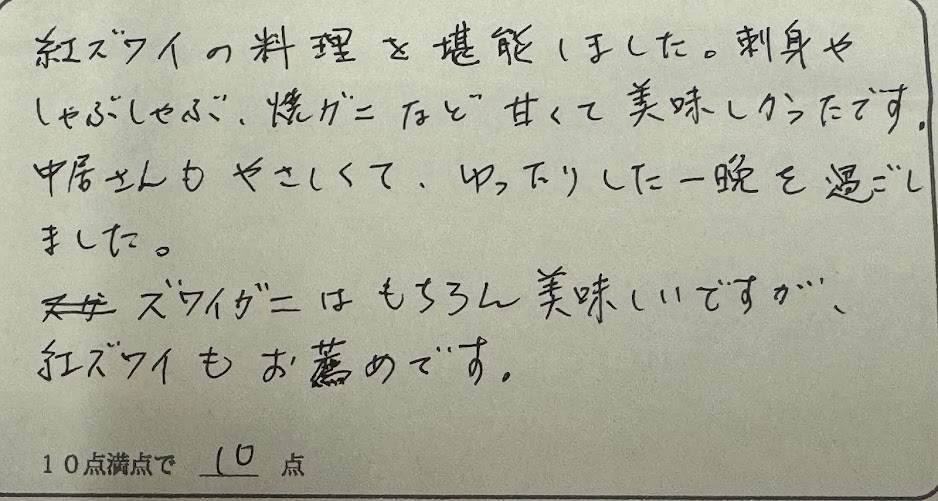 紅ズワイの料理を堪能しました。刺身や
しゃぶしゃぶ、焼ガニなど甘くて美味しかったです。
中居さんもやさしくて、ゆったりした一晩を過ごし
ました。
ズワイガニはもちろん美味しいですが、
紅ズワイもお薦めです。
10点満点で 10 点